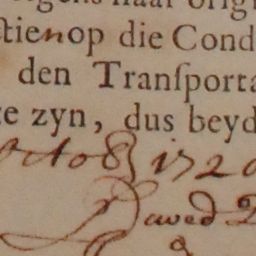 naar orig
ctien op die Cond
den Tranſporta
e zyn, dus beyd
octob 1720
David